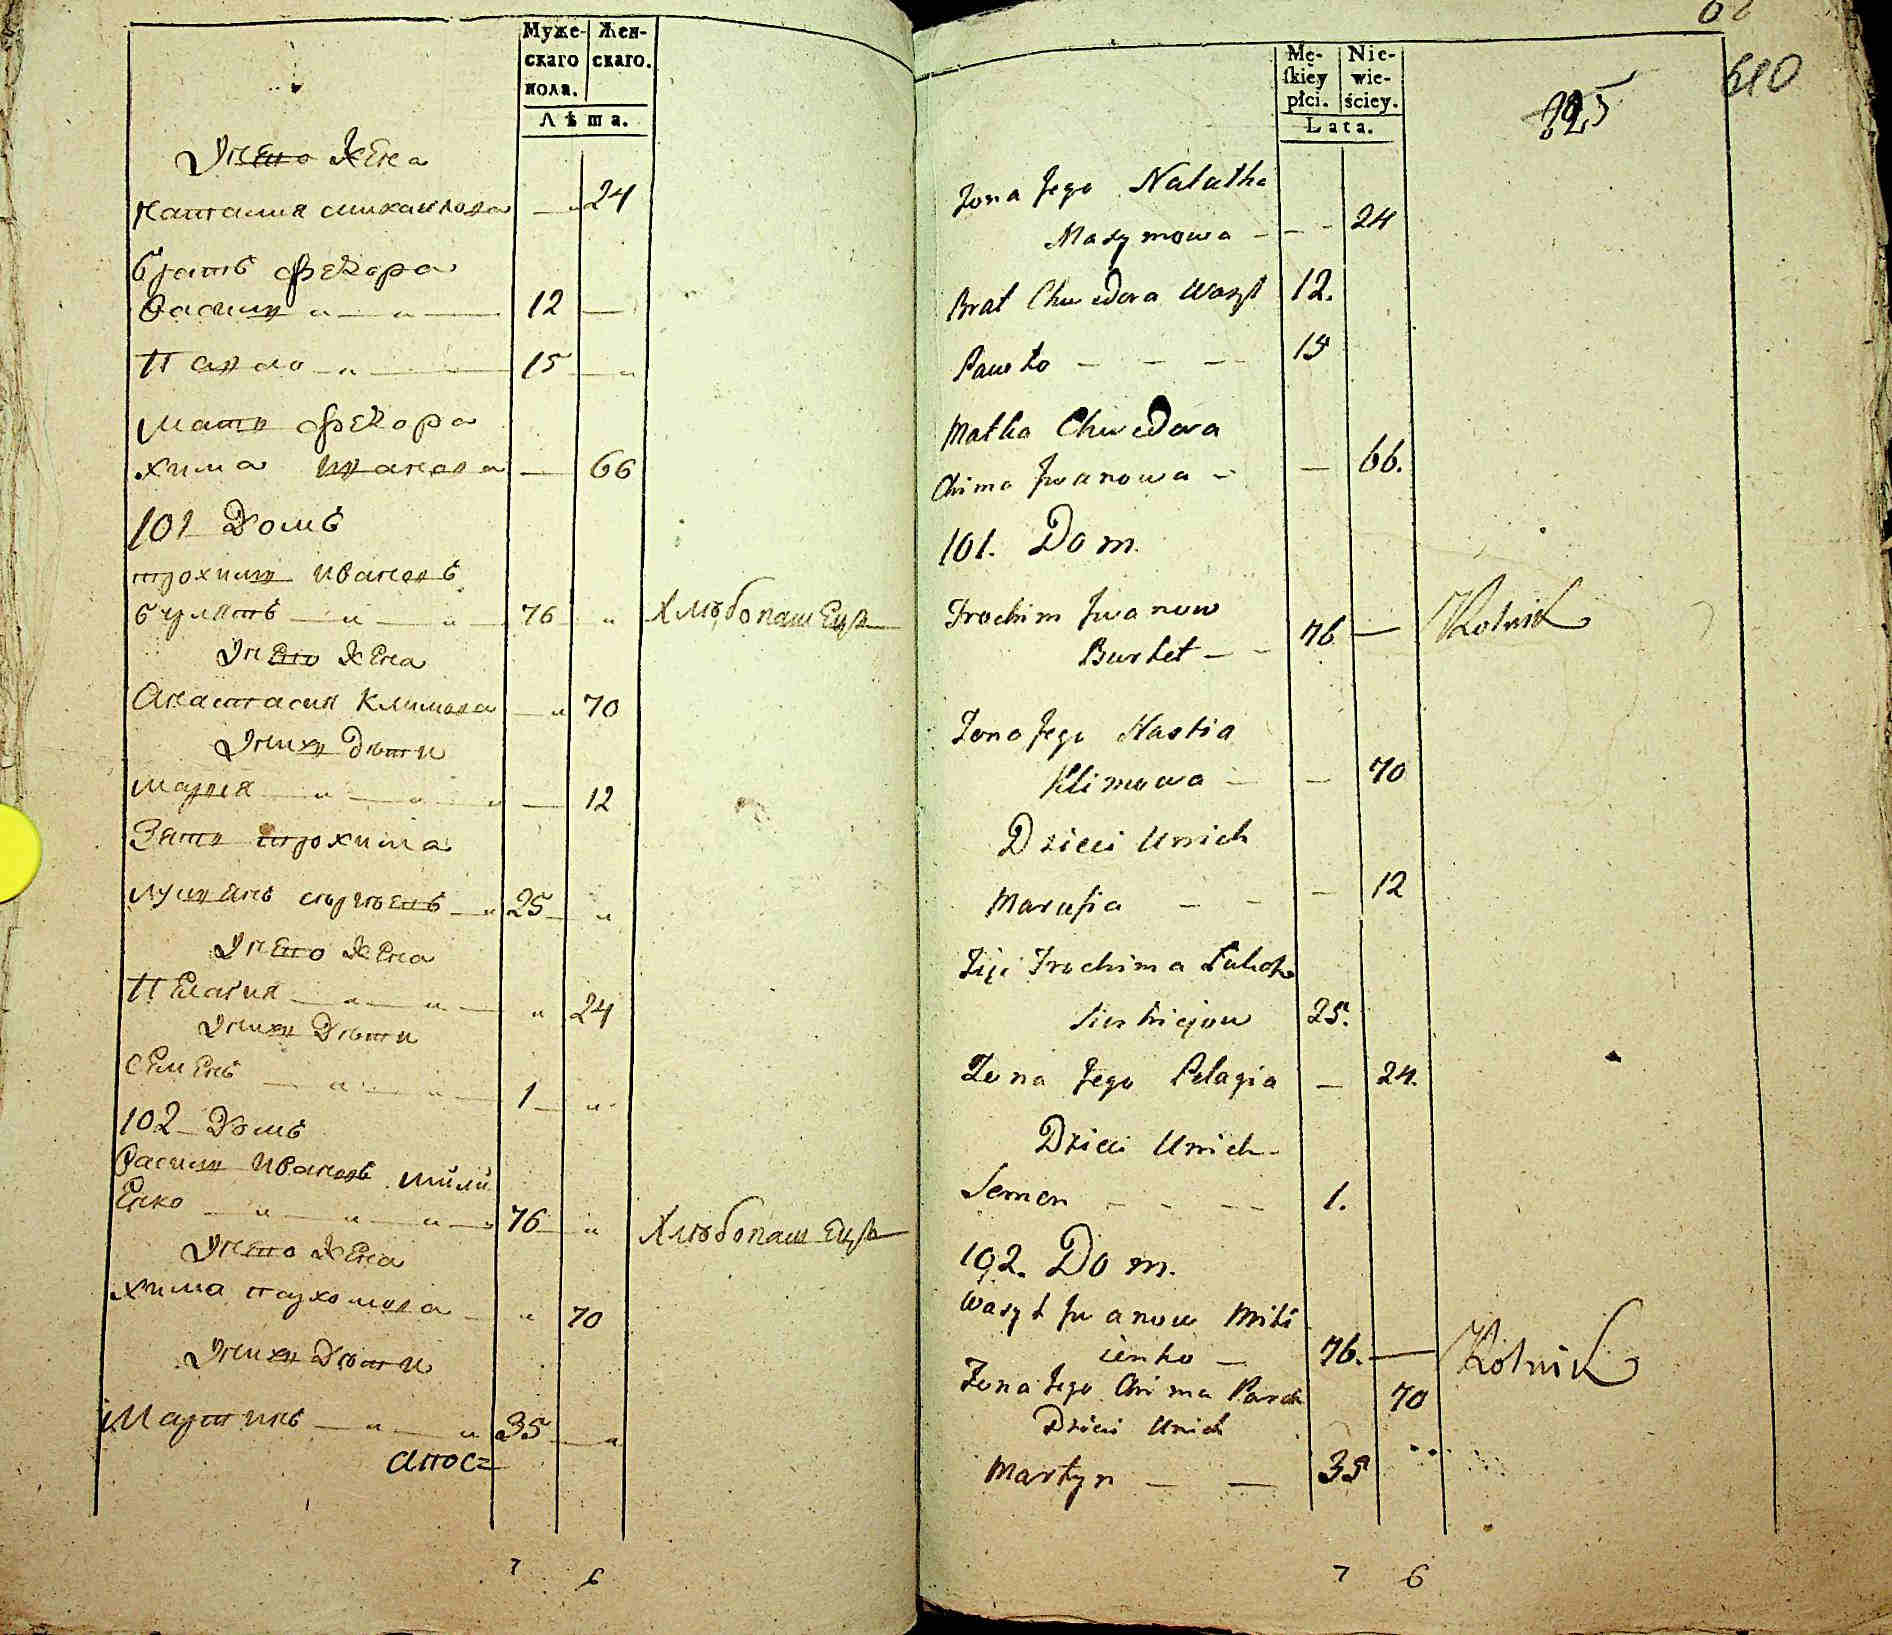 Муже-
скаго
пола.
Жен-
скаго.
Лѣта.
У него жена
Наталия михаилова 24
братъ федора
Василь 12
Павло 15
мать федора
хима иванова 66
101 Домъ
трохимъ ивановъ
бурлетъ 76 хлѣбопашецъ
У него жена
Анастасия климова 70
У них дѣти
мария 12
Зять трохима
лукьянъ сергѣевъ 25
У него жена
Пелагия 24
У них дѣти
семенъ 1
102 Домъ
Василь ивановъ мили
енко 76 хлѣбопашецъ
У него жена
хима пархомова 70
У них дѣти
Мартинъ 35
7 6
Mę-
skiey
płci.
Nie-
wie-
ściey.
Lata.
610
225
Zona Jego Natalka
Maxymowa 24
Brat Chwedora Wasyl 12.
Pawło 15
Matka Chwedora
Chima Jwanowa 66.
101. Dom.
Trochim Jwanow
Burlet 76 Rolnik
Zona Jego Nastia
Klimowa 70
Dzieci Unich
Marusia 12
Zięć Trochima
Sierhiejow 25.
Zona Jego Pelagia 24.
Dzieci Unich
Semen 1.
102. Dom.
Wasyl Jwanow Mili
ienko 76. Rolnik
Zona Jego Chima 70
Dzieci Unich
Martyn 35
7 6